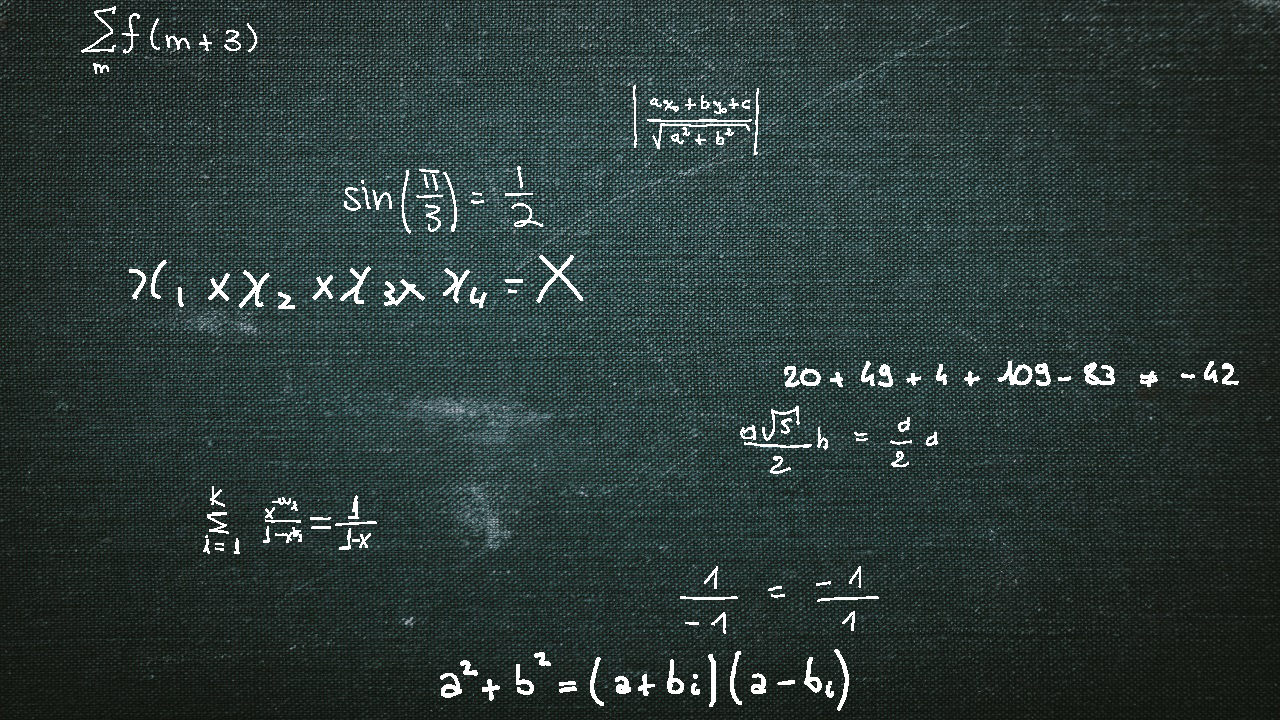 ∑_m f(m+3)
|(ax₀+by₀+c)/√(a²+b²)|
sin(π/3) = 1/2
x₁ × x₂ × x₃ × x₄ = X
20 + 49 + 4 + 109 - 83 ≠ -42
(a√5/2)b = (d/2)d
1/-1 = -1/1
a²+b² = (a+bi)(a-bi)